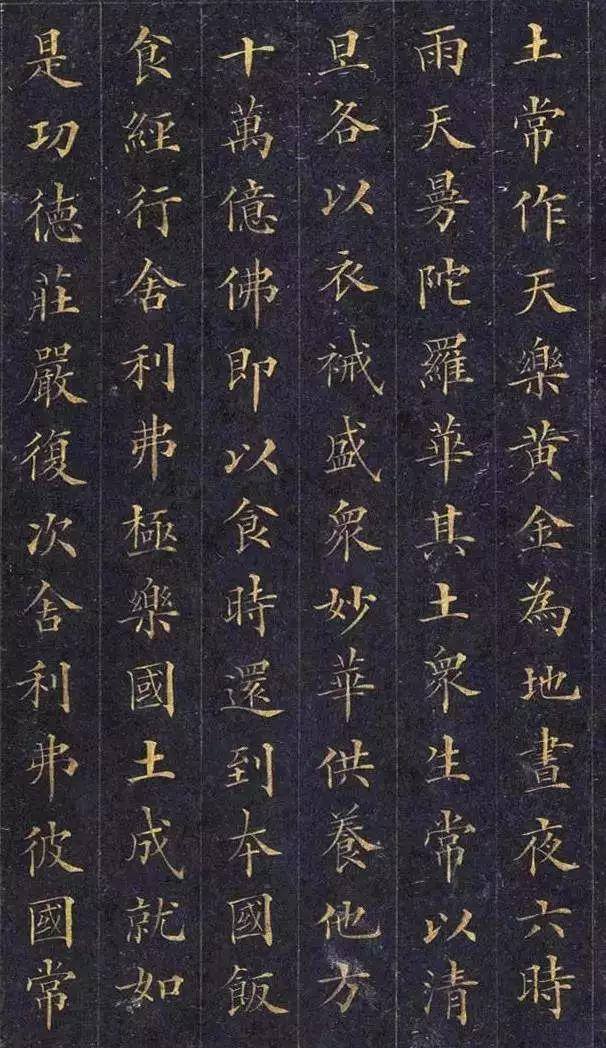 土常作天樂黃金為地晝夜六時
雨天曼陀羅華其土眾生常以清
旦各以衣裓盛眾妙華供養他方
十萬億佛即以食時還到本國飯
食經行舍利弗極樂國土成就如
是功德莊嚴復次舍利弗彼國常